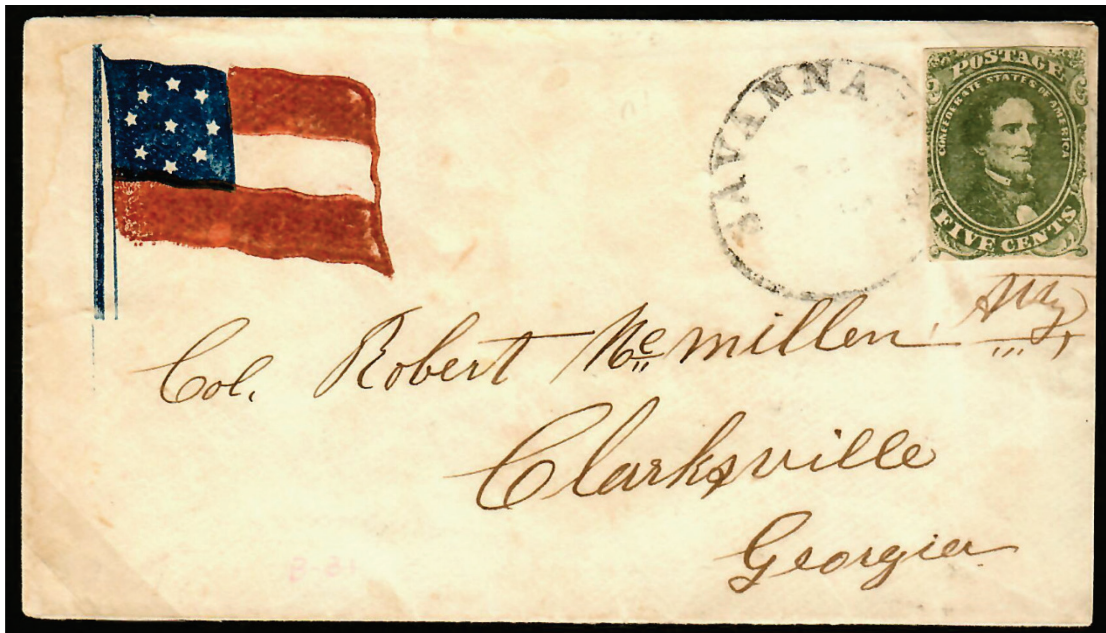 SAVANNA
POSTAGE
CONFEDERATE STATES OF AMERICA
FIVE CENTS
Col. Robert McMillen, Atty,
Clarksville
Georgia